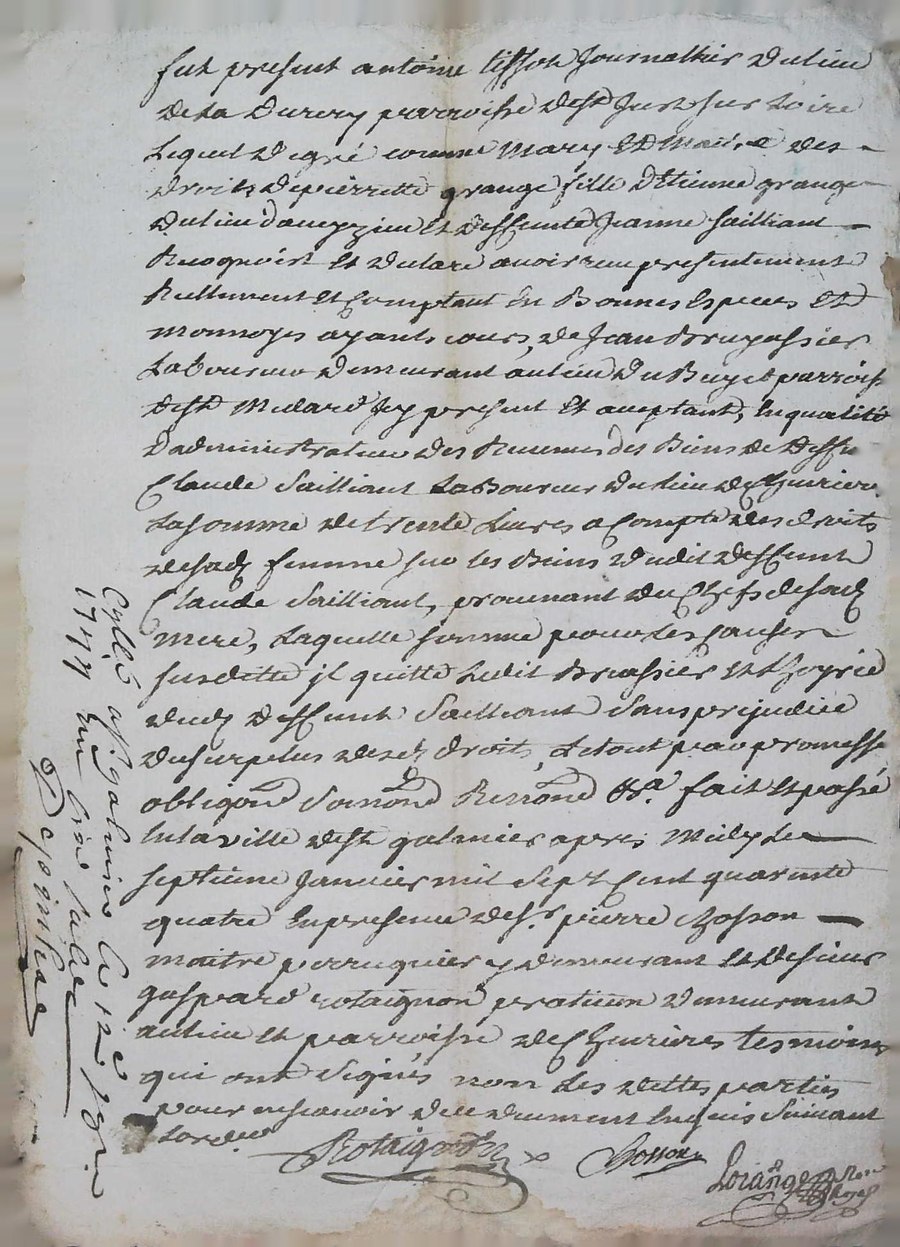 fut present antoine tissot Journallier du lieu
de la Durery parroisse de st Just sur Loire
Lequel de gré comme Mary Et Maitre des
Droits de pierrette grange fille d'Etienne grange
du lieu d'aveyzieu Et deffunte Jeanne Sailliant
Recognoist Et declare avoir reçu presentement
Reellement et Comptant En Bonnes Especes Et
monnoyes ayants cours, de Jean Bruyassier
Laboureur demeurant au lieu du Buyet parroisse
de st Medard Icy present Et aceptant, En qualité
D'administrateur des Revenus des Biens de deffu
Claude Sailliant Laboureur du lieu de Chevrieres
La somme de trente Livres a Compte des droits
de sad femme sur les Biens dudit deffunt
Claude Sailliant, provenant du Chefs de sad
mere, Laquelle somme pour les causes
susditte il quitte Ledit Bruassier et L'hoyrie
dud deffunt Sailliant Sans prejudice
du surplus desd droits, Le tout par promesse
obligaon Soumon Renon &a fait Et passé
En la ville de st galmier apres Midy Le
septieme Janvier mil Sept Cent quarente
quatre En presence de sr pierre Bosson
maitre perruquier y demeurant Et de sieur
gaspard rotaignon praticien demeurant
au lieu et parroisse de Chevrieres tesmoins
qui ont signés non Les dittes parties
pour ne sçavoir de ce duement Enquis Suivant
Lordce
Rotaignon Bosson
Lorange nore Royal
Cllé a st galmier le 12e Jer
1744 une livre